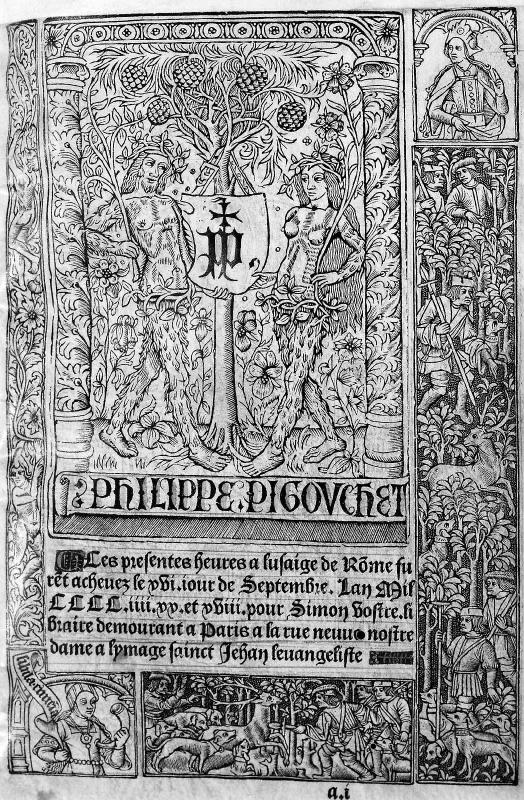 PHILIPPE.PIGOVCHET
Ces presentes heures a lusaige de Rõme fu
rẽt acheuez le xvi.iour de Septembre. Lan Mil
CCCC.iiii.xx.et xviii.pour Simon Vostre.li
braire demourant a Paris a la rue neuue nostre
dame a lymage sainct Jehan leuangeliste
a.i